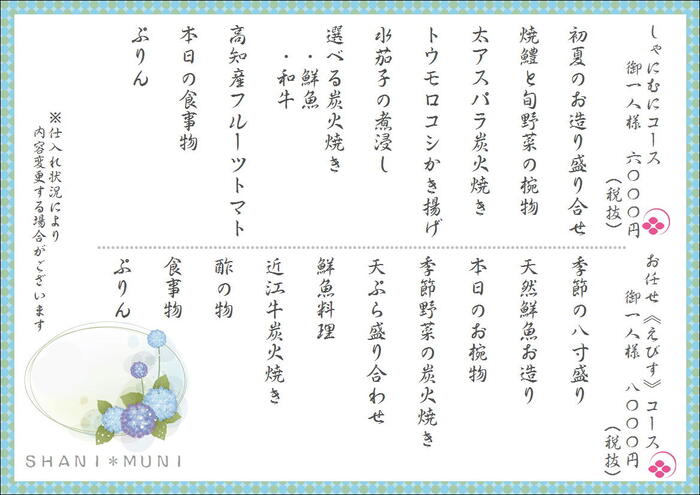 しゃにむにコース
御一人様 六〇〇〇円
（税抜）
初夏のお造り盛り合せ
焼鱧と旬野菜の椀物
太アスパラ炭火焼き
トウモロコシかき揚げ
水茄子の煮浸し
選べる炭火焼き
・鮮魚
・和牛
高知産フルーツトマト
本日の食事物
ぷりん
お任せ《えびす》コース
御一人様 八〇〇〇円
（税抜）
季節の八寸盛り
天然鮮魚お造り
本日のお椀物
季節野菜の炭火焼き
天ぷら盛り合わせ
鮮魚料理
近江牛炭火焼き
酢の物
食事物
ぷりん
※仕入れ状況により
内容変更する場合がございます
SHANI＊MUNI